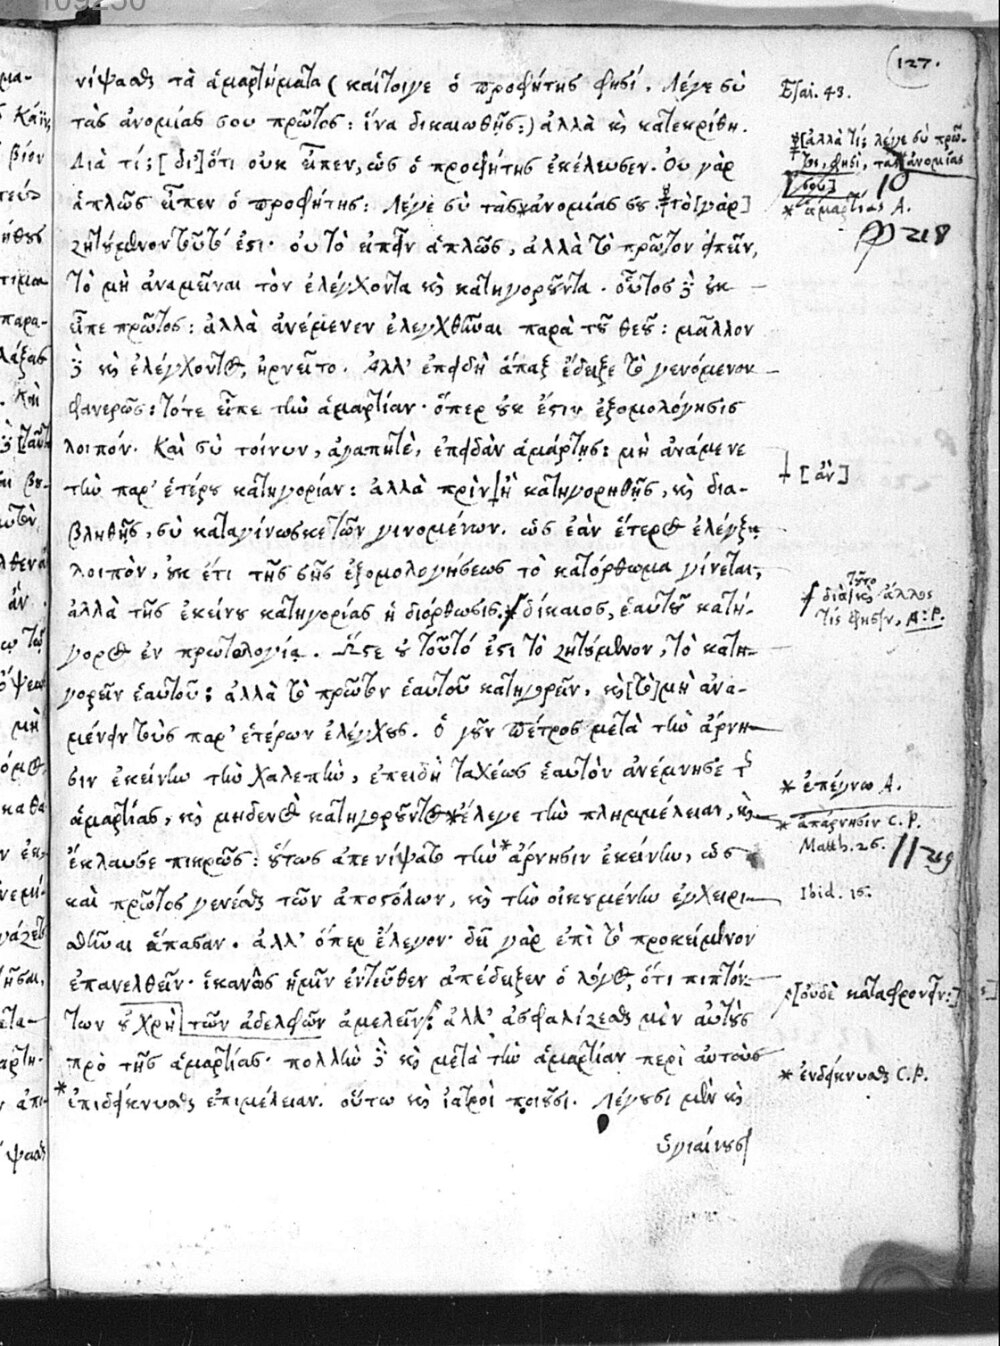 127.
νίψασθαι τὰ ἁμαρτήματα ( καίτοιγε ὁ προφήτης φησί. Λέγε σὺ
τὰς ἀνομίας σου πρῶτος: ἵνα δικαιωθῇς:) ἀλλὰ καὶ κατεκρίθη.
Διὰ τί; [δι]ότι οὐκ εἶπεν, ὡς ὁ προφήτης ἐκέλευσεν. Οὐ γὰρ
ἁπλῶς εἶπεν ὁ προφήτης: Λέγε σὺ τὰς * ἀνομίας σου. τὸ [γὰρ]
ζητούμενον τοῦτ' ἐστι· οὐ τὸ εἰπεῖν ἁπλῶς, ἀλλὰ τὸ πρῶτον εἰπεῖν,
τὸ μὴ ἀναμεῖναι τὸν ἐλέγχοντα καὶ κατηγοροῦντα. οὗτος δὲ οὐκ
εἶπε πρῶτος: ἀλλὰ ἀνέμενεν ἐλεγχθῆναι παρὰ τοῦ θεοῦ: μᾶλλον
δὲ καὶ ἐλέγχοντος, ἠρνεῖτο. Ἀλλ' ἐπειδὴ ἅπαξ ἔδειξε τὸ γενόμενον
φανερῶς: τότε εἶπε τὴν ἁμαρτίαν· ὅπερ οὐκ ἔστιν ἐξομολόγησις
λοιπόν. Καὶ σὺ τοίνυν, ἀγαπητὲ, ἐπειδὰν ἁμάρτῃς: μὴ ἀνάμενε
τὴν παρ' ἑτέρου κατηγορίαν: ἀλλὰ πρὶν ἢ κατηγορηθῇς, καὶ δια-
βληθῇς, σὺ καταγίνωσκε τῶν γινομένων. ὡς ἐὰν ἕτερος ἐλέγξῃ
λοιπὸν, οὐκ ἔτι τῆς σῆς ἐξομολογήσεως τὸ κατόρθωμα γίνεται,
ἀλλὰ τῆς ἐκείνου κατηγορίας ἡ διόρθωσις. δίκαιος, ἑαυτοῦ κατή-
γορος ἐν πρωτολογίᾳ. Ὥστε οὐ τοῦτό ἐστι τὸ ζητούμενον, τὸ κατη-
γορεῖν ἑαυτοῦ; ἀλλὰ τὸ πρῶτον ἑαυτοῦ κατηγορεῖν, καὶ [τὸ] μὴ ἀνα-
μένειν τοὺς παρ' ἑτέρων ἐλέγχους. Ὁ γοῦν Πέτρος μετὰ τὴν ἄρνη-
σιν ἐκείνην τὴν χαλεπὴν, ἐπειδὴ ταχέως ἑαυτὸν ἀνέμνησε τῆς
ἁμαρτίας, καὶ μηδενὸς κατηγοροῦντος * ἔλεγε τὴν πλημμέλειαν, καὶ
ἔκλαυσε πικρῶς: οὕτως ἀπενίψατο τὴν * ἄρνησιν ἐκείνην, ὡς
καὶ πρῶτος γενέσθαι τῶν ἀποστόλων, καὶ τὴν οἰκουμένην ἐγχειρι-
σθῆναι ἅπασαν. ἀλλ' ὅπερ ἔλεγον· δεῖ γὰρ ἐπὶ τὸ προκείμενον
ἐπανελθεῖν· ἱκανῶς ἡμῖν ἐντεῦθεν ἀπέδειξεν ὁ λόγος, ὅτι πιπτόν-
των οὐ χρὴ τῶν ἀδελφῶν ἀμελεῖν: ἀλλ' ἀσφαλίζεσθαι μὲν αὐτοὺς
πρὸ τῆς ἁμαρτίας· πολλὴν δὲ καὶ μετὰ τὴν ἁμαρτίαν περὶ αὐτοὺς
* ἐπιδείκνυσθαι ἐπιμέλειαν. οὕτω καὶ ἰατροὶ ποιοῦσι. Λέγουσι μὲν καὶ
ὑγιαίνουσι
Esai. 43.
[ἀλλὰ τί; λέγε σὺ πρῶ-
τος, φησὶ, τὰς ἀνομίας
σου]
* ἁμαρτίας A.
218
[ἂν]
διὰ τοῦτο καὶ ἄλλος
τίς φησιν, A. P.
* ἐπέγνω A.
* ἀπάρνησιν C. P.
Matth. 26.
219
Ibid. 16.
[οὐδὲ καταφρονεῖν:]
* ἐνδείκνυσθαι C. P.